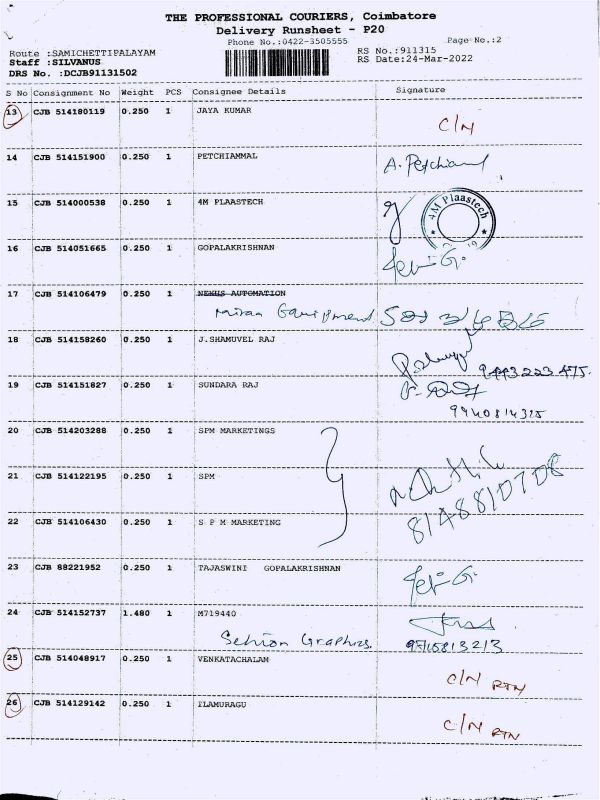 THE PROFESSIONAL COURIERS, Coimbatore
Delivery Runsheet - P20
Phone No.:0422-3505555 Page No.:2
Route :SAMICHETTIPALAYAM RS No.:911315
Staff :SILVANUS RS Date:24-Mar-2022
DRS No. :DCJB91131502
S No Consignment No Weight PCS Consignee Details Signature
13 CJB 514180119 0.250 1 JAYA KUMAR C/N
14 CJB 514151900 0.250 1 PETCHIAMMAL A. Petchiaml
15 CJB 514000538 0.250 1 4M PLAASTECH 4M Plaastech
16 CJB 514051665 0.250 1 GOPALAKRISHNAN
17 CJB 514106479 0.250 1 NEXUS AUTOMATION
18 CJB 514158260 0.250 1 J.SHAMUVEL RAJ
9443223475.
19 CJB 514151827 0.250 1 SUNDARA RAJ
20 CJB 514203288 0.250 1 SPM MARKETINGS
21 CJB 514122195 0.250 1 SPM
8148810708
22 CJB 514106430 0.250 1 S P M MARKETING
23 CJB 88221952 0.250 1 TAJASWINI GOPALAKRISHNAN
24 CJB 514152737 1.480 1 M719440
Sehion Graphics
25 CJB 514048917 0.250 1 VENKATACHALAM C/N RTN
26 CJB 514129142 0.250 1 ILAMURAGU C/N RTN